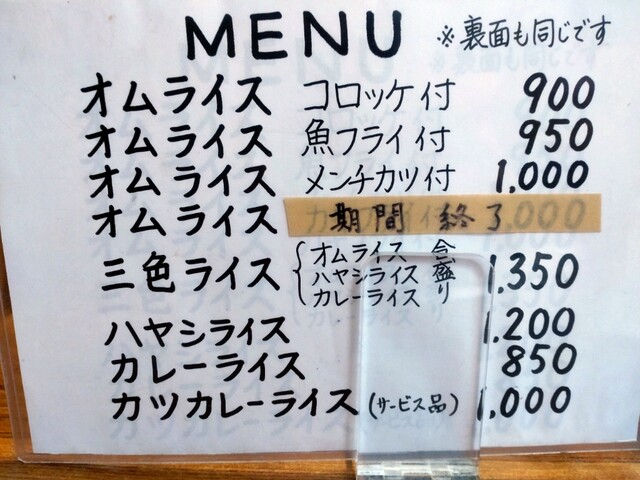 MENU ※裏面も同じです
オムライス コロッケ付 900
オムライス 魚フライ付 950
オムライス メンチカツ付 1,000
オムライス 期間 終了,000
三色ライス オムライス ハヤシライス カレーライス 合盛り 1,350
ハヤシライス 1,200
カレーライス 850
カツカレーライス (サービス品) 1,000